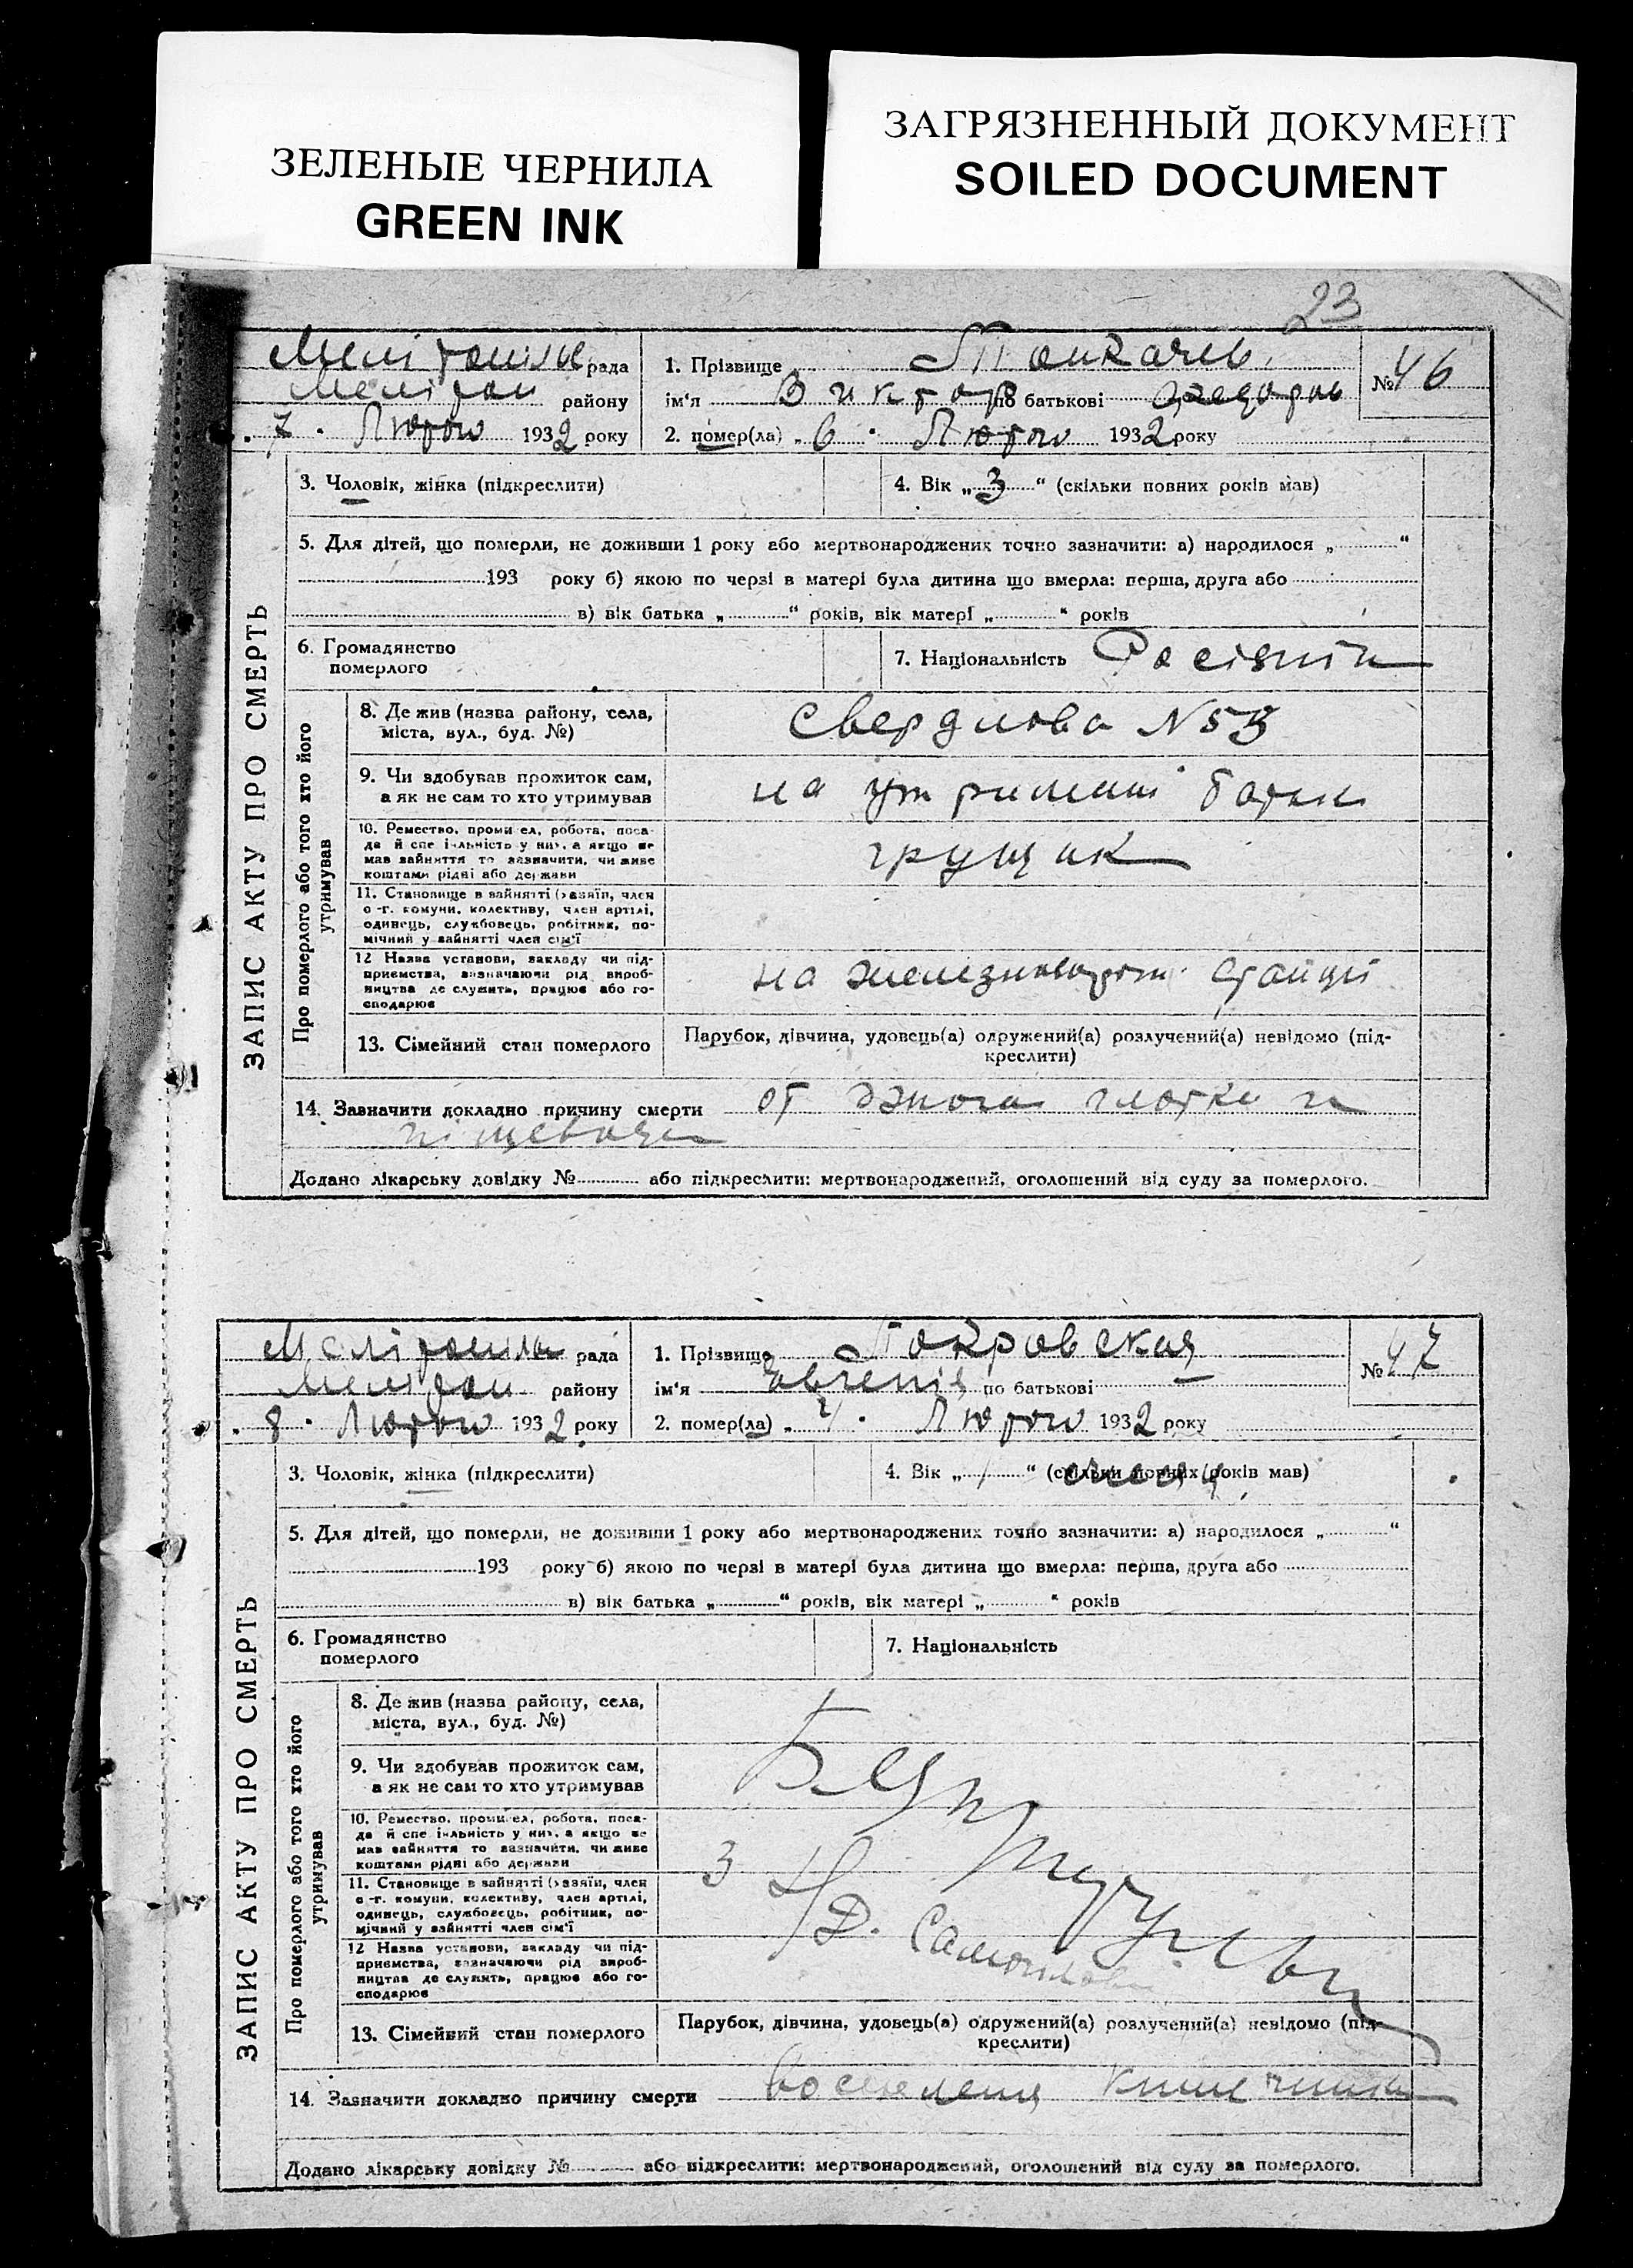 ЗЕЛЕНЫЕ ЧЕРНИЛА
GREEN INK
ЗАГРЯЗНЕННЫЙ ДОКУМЕНТ
SOILED DOCUMENT
23
ЗАПИС АКТУ ПРО СМЕРТЬ
рада
району
7 1932 року
1. Прізвище
№ 46
ім'я Виктор по батькові
2. помер(ла) „ 6 " 1932 року
3. Чоловік, жінка (підкреслити)
4. Вік „ 3 “ (скільки повних років мав)
5. Для дітей, що померли, не доживши 1 року або мертвонароджених точно зазначити: а) народилося „ “
193 року б) якою по черзі в матері була дитина що вмерла: перша, друга або
в) вік батька „ “ років, вік матері „ “ років
6. Громадянство померлого
7. Національність
Про померлого або того хто його утримував
8. Де жив (назва району, села, міста, вул., буд. №)
Свердлова N 53
9. Чи здобував прожиток сам, а як не сам то хто утримував
на утримані
10. Ремество, промисел, робота, посада й спеціальність у них, а якщо не мав зайняття то зазначити, чи живе коштами рідні або держави
грущик
11. Становище в зайнятті (хазяїн, член с.-г. комуни, колективу, член артілі, одинець, службовець, робітник, помічний у зайнятті член сім'ї
12 Назва установи, закладу чи підприємства, зазначаючи рід виробництва де служить, працює або господарює
на станції
13. Сімейний стан померлого
Парубок, дівчина, удовець(а) одружений(а) розлучений(а) невідомо (підкреслити)
14. Зазначити докладно причину смерти от ожога глотки и
пищевода
Додано лікарську довідку № або підкреслити: мертвонароджений, оголошений від суду за померлого.
ЗАПИС АКТУ ПРО СМЕРТЬ
рада
району
8 1932 року
1. Прізвище Покровская
№ 47
ім'я Евгенія по батькові
2. помер(ла) „ 1932 року
3. Чоловік, жінка (підкреслити)
4. Вік „ 1 “ (скільки повних років мав) месяц
5. Для дітей, що померли, не доживши 1 року або мертвонароджених точно зазначити: а) народилося „ “
193 року б) якою по черзі в матері була дитина що вмерла: перша, друга або
в) вік батька „ “ років, вік матері „ “ років
6. Громадянство померлого
7. Національність
Про померлого або того хто його утримував
8. Де жив (назва району, села, міста, вул., буд. №)
9. Чи здобував прожиток сам, а як не сам то хто утримував
10. Ремество, промисел, робота, посада й спеціальність у них, а якщо не мав зайняття то зазначити, чи живе коштами рідні або держави
11. Становище в зайнятті (хазяїн, член с.-г. комуни, колективу, член артілі, одинець, службовець, робітник, помічний у зайнятті член сім'ї
12 Назва установи, закладу чи підприємства, зазначаючи рід виробництва де служить, працює або господарює
13. Сімейний стан померлого
Парубок, дівчина, удовець(а) одружений(а) розлучений(а) невідомо (підкреслити)
14. Зазначити докладно причину смерти
Додано лікарську довідку № або підкреслити: мертвонароджений, оголошений від суду за померлого.